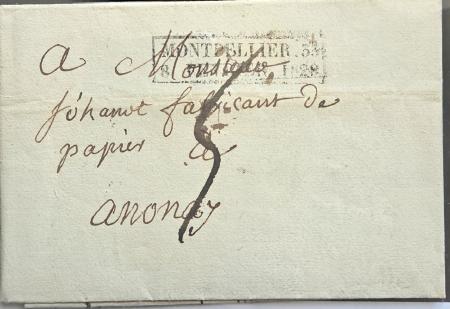 MONTPELLIER. 
8 1829
a Monsieur
johanot fabricant de
papier à
anonay
5